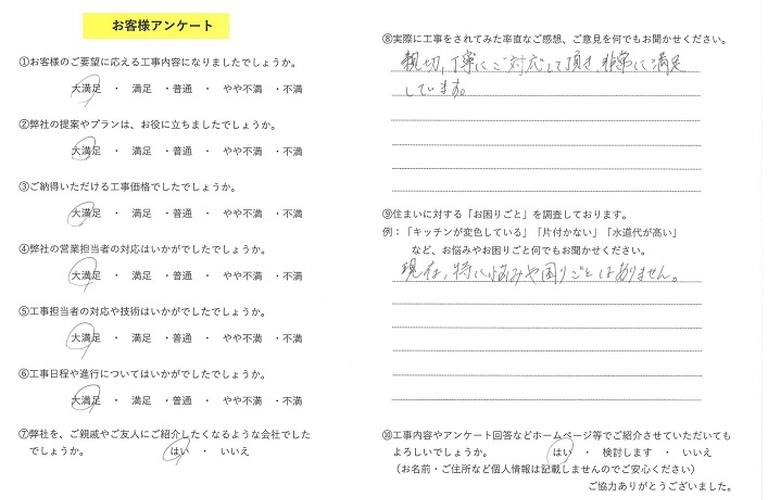 お客様アンケート
①お客様のご要望に応える工事内容になりましたでしょうか。
大満足 ・ 満足 ・普通 ・ やや不満 ・不満
②弊社の提案やプランは、お役に立ちましたでしょうか。
大満足 ・ 満足 ・普通 ・ やや不満 ・不満
③ご納得いただける工事価格でしたでしょうか。
大満足 ・ 満足 ・普通 ・ やや不満 ・不満
④弊社の営業担当者の対応はいかがでしたでしょうか。
大満足 ・ 満足 ・普通 ・ やや不満 ・不満
⑤工事担当者の対応や技術はいかがでしたでしょうか。
大満足 ・ 満足 ・普通 ・ やや不満 ・不満
⑥工事日程や進行についてはいかがでしたでしょうか。
大満足 ・ 満足 ・普通 ・ やや不満 ・不満
⑦弊社を、ご親戚やご友人にご紹介したくなるような会社でした
でしょうか。 はい ・ いいえ
⑧実際に工事をされてみた率直なご感想、ご意見を何でもお聞かせください。
親切、丁寧にご対応して頂き、非常に満足
しています。
⑨住まいに対する「お困りごと」を調査しております。
例：「キッチンが変色している」「片付かない」「水道代が高い」
など、お悩みやお困りごと何でもお聞かせください。
現在、特に悩みや困りごとはありません。
⑩工事内容やアンケート回答などホームページ等でご紹介させていただいても
よろしいでしょうか。 はい ・ 検討します ・ いいえ
（お名前・ご住所など個人情報は記載しませんのでご安心ください）
ご協力ありがとうございました。